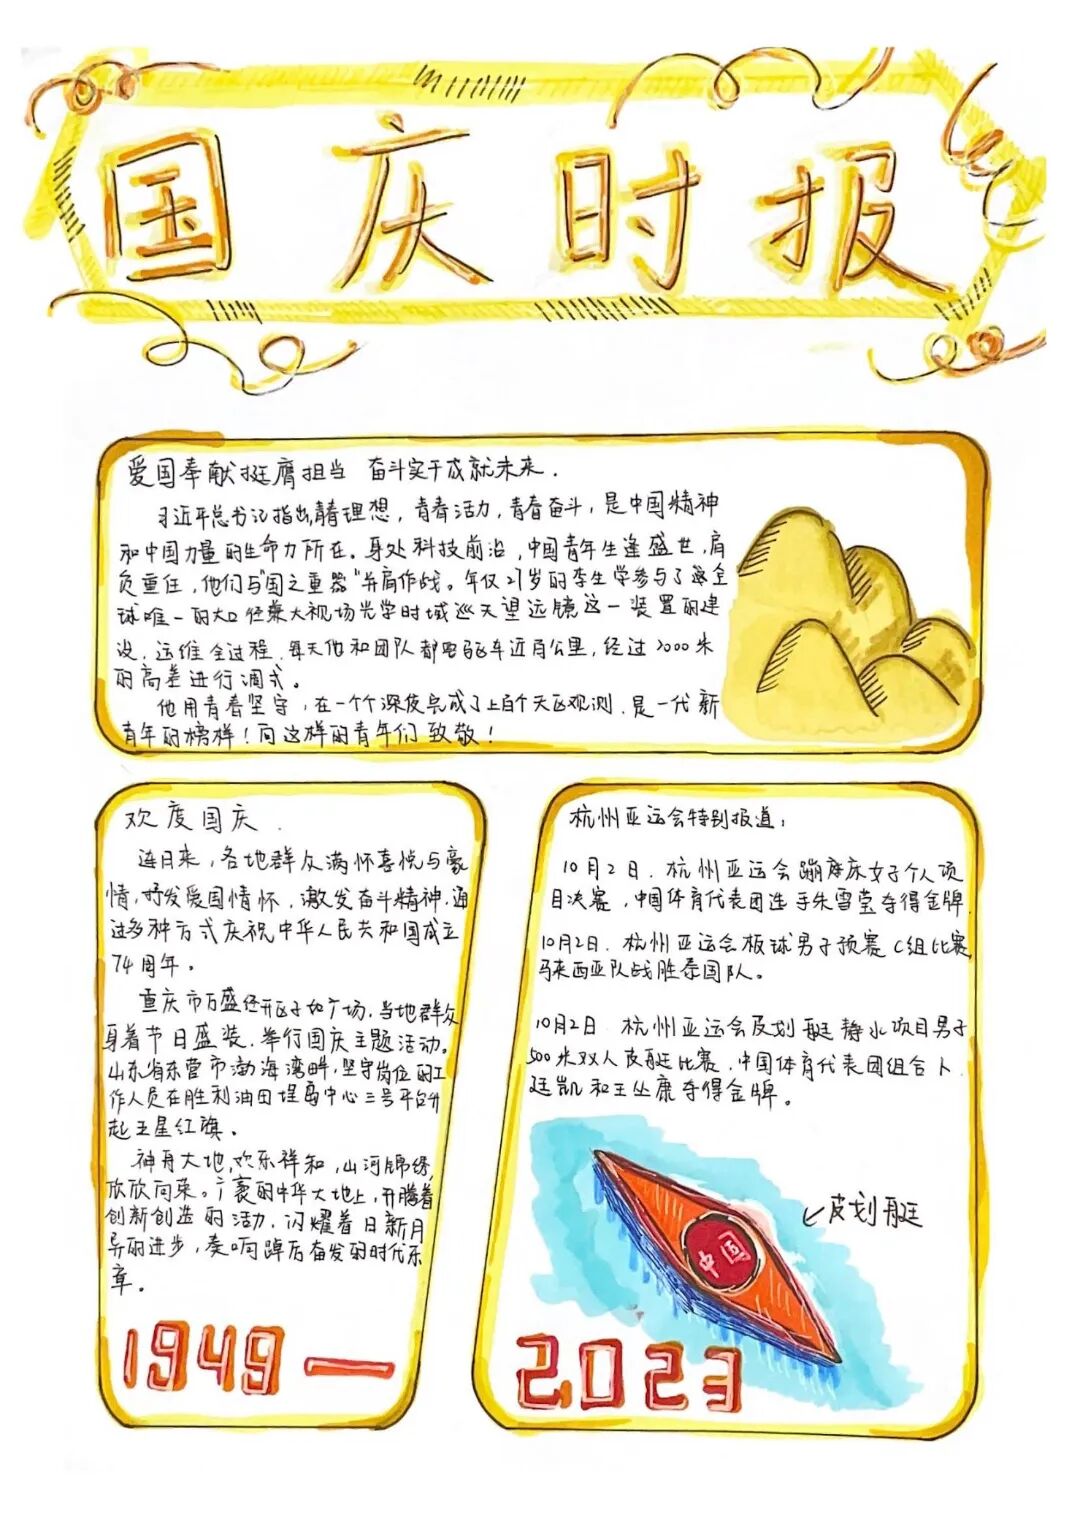 国庆时报
爱国奉献挺膺担当 奋斗实干成就未来.
习近平总书记指出,青春理想,青春活力,青春奋斗,是中国精神
和中国力量的生命力所在。身处科技前沿,中国青年生逢盛世,肩
负重任,他们与"国之重器"并肩作战。年仅27岁的李生学参与了这全
球唯一的大口径兼大视场光学时域巡天望远镜这一装置的建
设.运维全过程.每天他和团队都要驱车近百公里,经过2000米
的高差进行调试。
他用青春坚守,在一个个深夜完成了上百个天区观测.是一代新
青年的榜样!向这样的青年们致敬!
欢度国庆.
连日来,各地群众满怀喜悦与豪
情,抒发爱国情怀,激发奋斗精神,通
过多种方式庆祝中华人民共和国成立
74周年。
重庆市万盛经开区子如广场.当地群众
身着节日盛装.举行国庆主题活动。
山东省东营市渤海湾畔,坚守岗位的工
作人员在胜利油田埕岛中心三号平台升
起五星红旗。
神舟大地,欢乐祥和,山河锦绣,
欣欣向荣。广袤的中华大地上,升腾着
创新创造的活力,闪耀着日新月
异的进步,奏响踔厉奋发的时代乐
章。
1949—
杭州亚运会特别报道:
10月2日.杭州亚运会蹦摩床女子个人项
目决赛,中国体育代表团选手朱雪莹夺得金牌
10月2日.杭州亚运会板球男子预赛C组比赛,
马来西亚队战胜泰国队。
10月2日.杭州亚运会皮划艇静水项目男子
500米双人皮艇比赛.中国体育代表团组合卜
廷凯和王丛康夺得金牌。
皮划艇
中国
2023